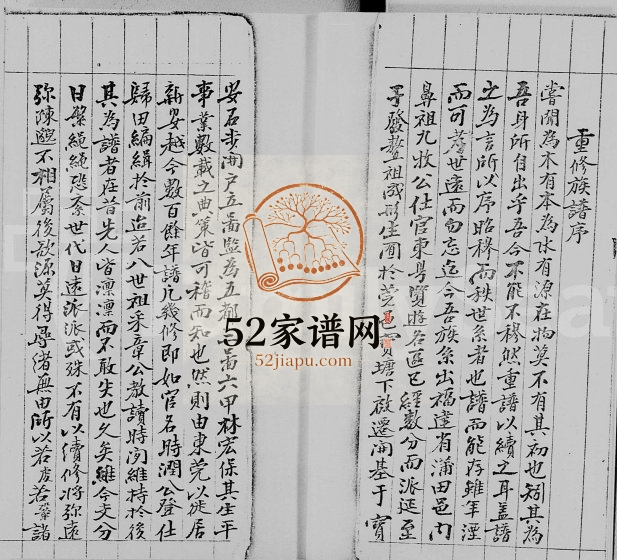 重修族譜序
嘗聞為木有本為水有源在物莫不有其初也矧其為
吾身所自出乎吾今不能不穆然重譜以續之耳蓋譜
之為言所以序昭穆而秩世系者也譜而能存雖年湮
而可考世遠而勿忘迄今吾族系出福建省蒲田邑內
鼻祖九牧公仕官東粵覽勝名區已經數分而派延至
發 祖成形生 於莞邑 塘下啟遷開基于寶
安石步開户立啚監為五都 啚六甲林宏保其生平
事業數載之典策皆可稽而知也然則由東莞以徙居
新安越今數百餘年譜凡幾修即如官名時潤公登仕
歸田編緝於前迨若八世祖采章公教讀時閑維持於後
其為譜者在昔先人皆凜凜而不敢失也久矣雖今丈分
日盤繩繩恐柰世代日遠派派或殊不有以續修將弥遠
弥陳邈不相屬後欲源莫得尋緒無由所以若 若 諸
52家谱网
52jiapu.com